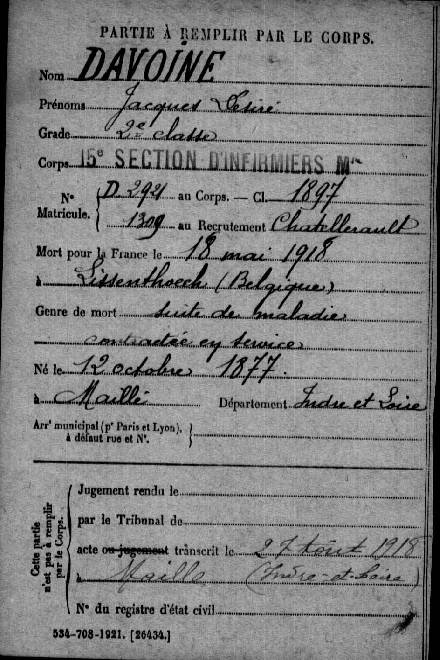 PARTIE À REMPLIR PAR LE CORPS.
Nom DAVOINE
Prénoms Jacques Désiré
Grade 2e classe
Corps 15e SECTION D'INFIRMIERS Mres
N° Matricule. D 2921 au Corps. — Cl. 1897
1309 au Recrutement Chatellerault
Mort pour la France le 18 mai 1918
à Lissenthoech (Belgique)
Genre de mort suite de maladie
contractée en service
Né le 12 octobre 1877.
à Maillé Département Indre et Loire
Arrt municipal (pr Paris et Lyon),
à défaut rue et N°.
Cette partie n'est pas à remplir par le Corps.
Jugement rendu le
par le Tribunal de
acte ou jugement transcrit le 27 Août 1918
à Maillé (Indre-et-Loire)
N° du registre d'état civil
534-708-1921. [26434.]